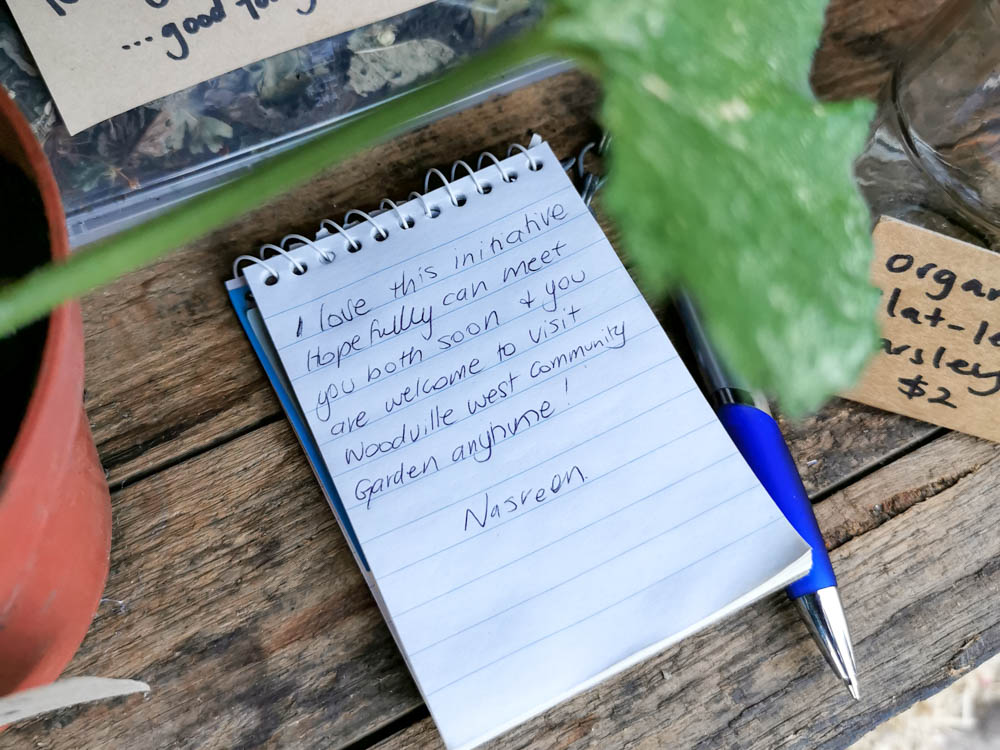 ...good
I love this initiative
Hopefully can meet
you both soon & you
are welcome to visit
Woodville west community
Garden anytime!
Nasreen.
organ
lat-le
arsley
$2